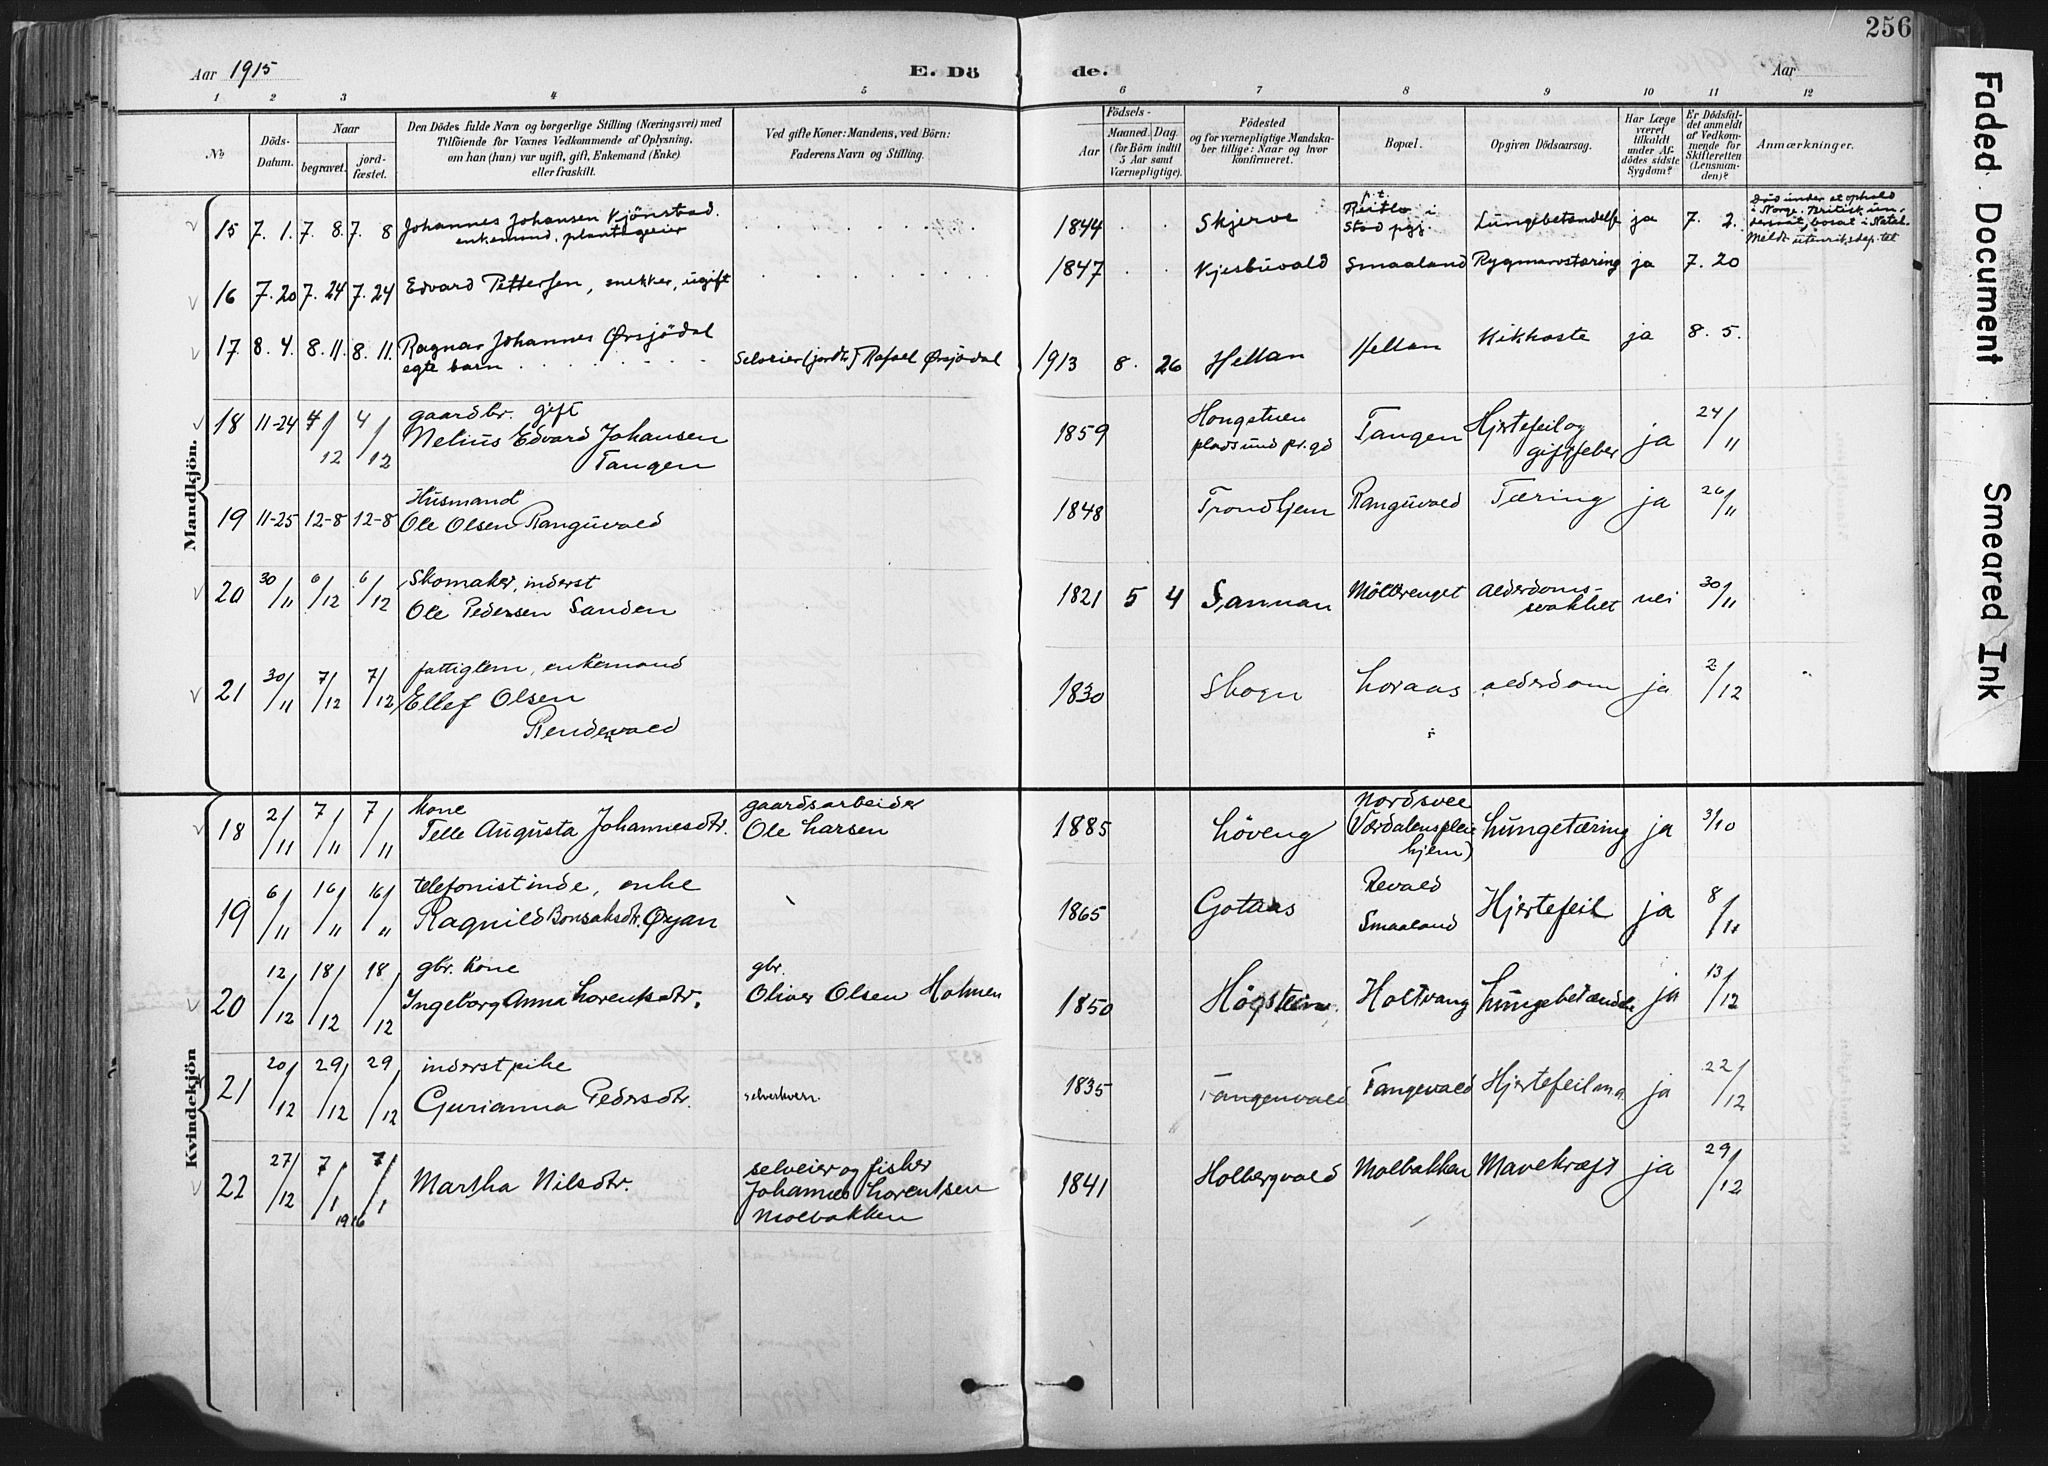 256
Aar 1915
E. Dö
de.
Aar
1 2 3 4 5 6 7 8 9 10 11 12
No
Döds-Datum.
Naar
begravet.
jord-fæstet.
Den Dödes fulde Navn og borgerlige Stilling (Næringsvei) med
Tilföiende for Voxnes Vedkommende af Oplysning.
om han (hun) var ugift, gift, Enkemand (Enke)
eller fraskilt.
Ved gifte Koner: Mandens, ved Börn:
Faderens Navn og Stilling.
Födsels-
Aar
Maaned. Dag.
(for Börn indtil
5 Aar samt
Værnepligtige).
Födested
og for værnepligtige Mandska-
ber tillige: Naar og hvor
konfirmeret.
Bopæl.
Opgiven Dödsaarsag.
Har Læge
været
tilkaldt
under Af-
dödes sidste
Sygdom?
Er Dödsfal-
det anmeldt
af Vedkom-
mende for
Skifteretten
(Lensman-
den)?
Anmærkninger.
Mandkjön.
15 7. 1. 7. 8. 7. 8 Johannes Johansen Kjönstad.
enkemand, plantageeier
1844 Skjerve p.t. Reitlo i Stod pgj. Lungebetændelse ja 7. 2.
Död under et ophold
i Norge. Britisk un-
dersaat, bosat i Natal.
Meldt utenriksdep.tet
16 7. 20 7. 24 7. 24 Edvard Pettersen, snekker, ugift 1847 Kjesbuvald Smaaland Rygmarvstæring ja 7. 20
17 8. 4. 8. 11. 8. 11. Ragnar Johannes Ørsjödal
egte barn Selveier (jordbr.) Rafael Ørsjödal 1913 8. 26 Hellan Hellan Kikhoste ja 8. 5.
18 11-24 4/12 4/12 gaardbr. gift
Nelius Edvard Johansen
Tangen
1859 Hongstuen
plads und pr.gd Tangen Hjertefeil og
giftfeber ja 24/11
19 11-25 12-8 12-8 Husmand
Ole Olsen Ranguvald 1848 Trondhjem Ranguvald Tæring ja 26/11
20 30/11 6/12 6/12 Skomaker, inderst
Ole Pedersen Sanden 1821 5 4 Sannan Möllerenget alderdoms-
svakhet nei 30/11
21 30/11 7/12 7/12 fattiglem, enkemand
Ellef Olsen
Rendevald
1830 Skogn Loraas alderdom ja 2/12
Kvindekjön
18 2/11 7/11 7/11 kone
Telle Augusta Johannesdtr. gaardsarbeider
Ole Larsen 1885 Löveng Nordsvee
(Værdalens pleie
hjem) Lungetæring ja 3/10
19 6/11 16/11 16/11 telefonistinde, enke
Ragnild Bonsaksdtr. Øyan 1865 Gotaas Revald
Smaaland Hjertefeil ja 8/11
20 12/12 18/12 18/12 gbr. kone
Ingeborg Anna Lorentsdtr. gbr.
Oliver Olsen Holmen 1850 Högstein Holtvang Lungebetænd. ja 13/12
21 20/12 29/12 29/12 inderst pike
Gurianna Pedersdtr. selverhverv. 1835 Tangenvald Tangevald Hjertefeil m.m. ja 22/12
22 27/12 7/1 7/1 1916 Martha Nilsdtr. selveier og fisker
Johannes Lorentsen
Molbakken 1841 Holbergvald Molbakken Mavekræft ja 29/12
Faded Document
Smeared Ink